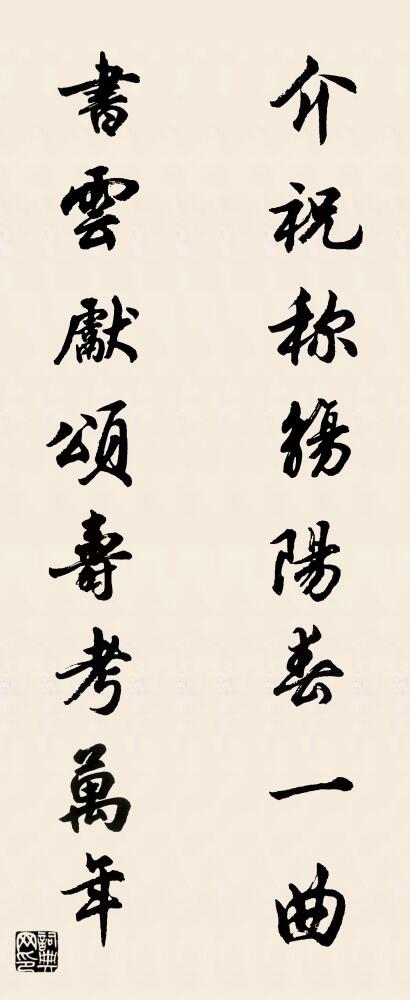 介祝称觴陽春一曲
書雲獻頌壽考萬年
詞典网印